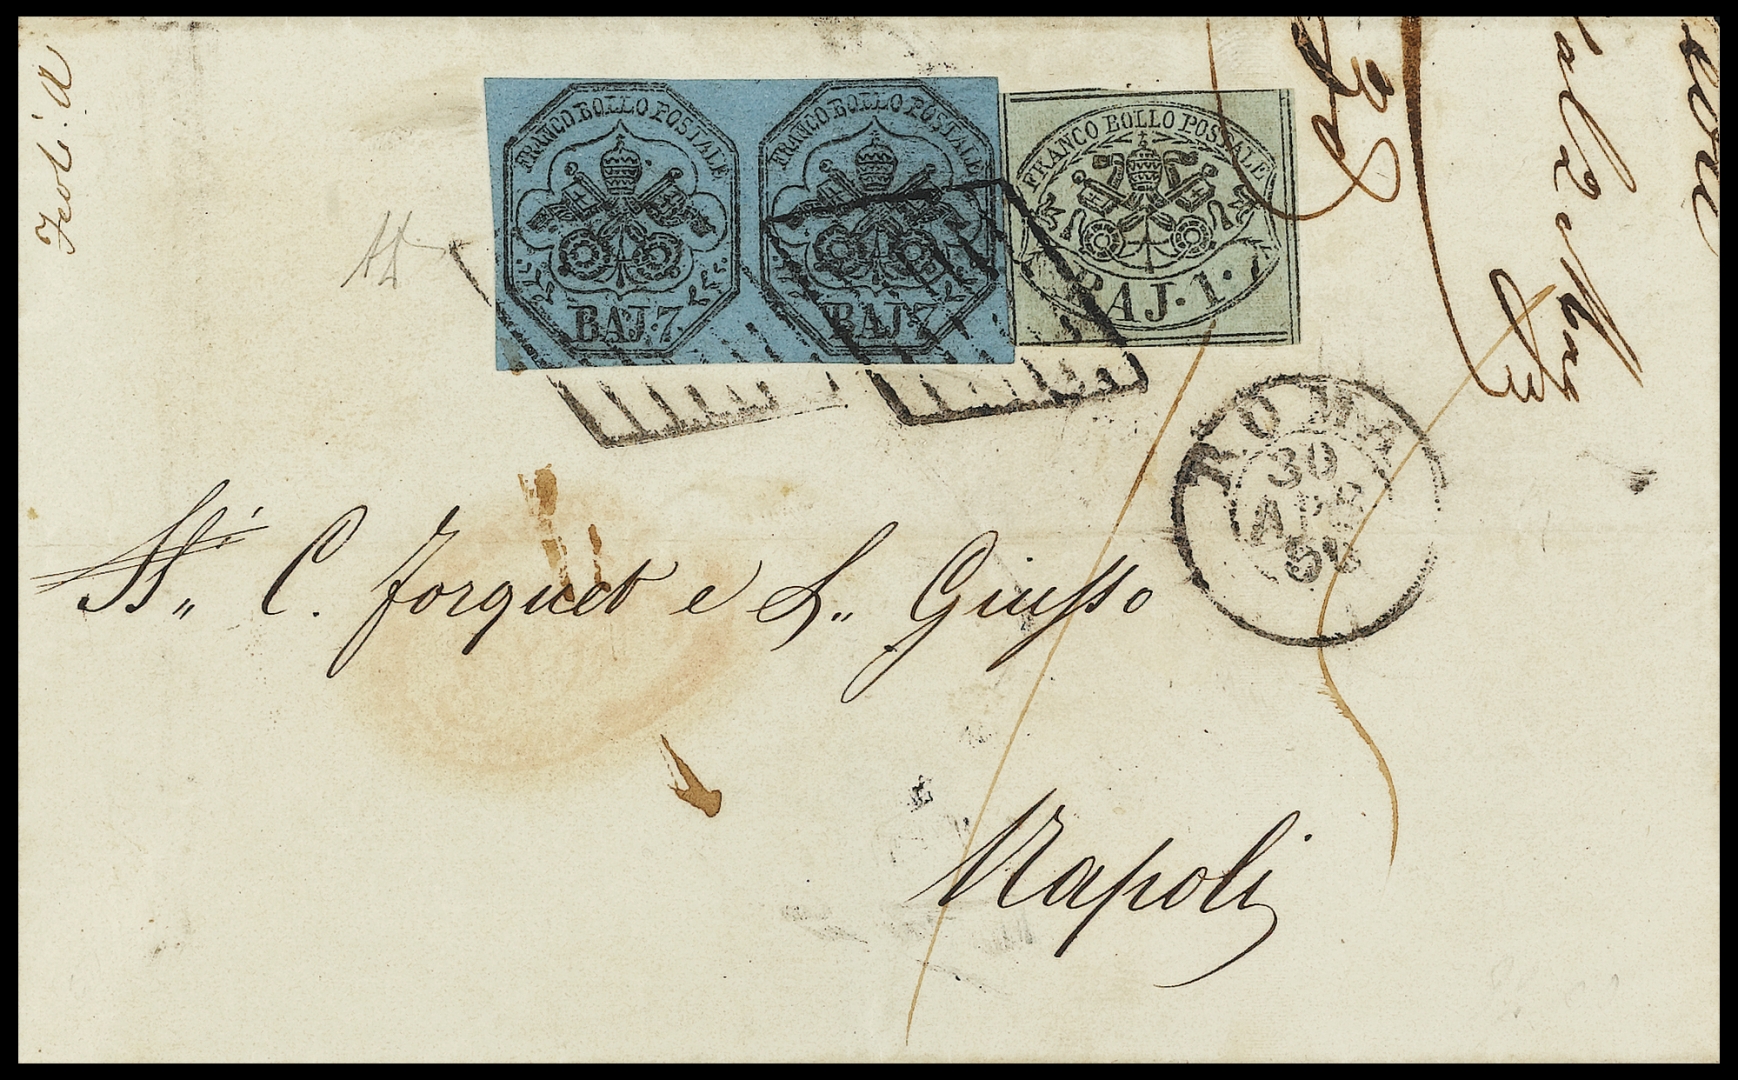 FRANCO BOLLO POSTALE
BAJ. 7.
FRANCO BOLLO POSTALE
BAJ. 7.
FRANCO BOLLO POSTALE
BAJ. 1.
ROMA
30
APR
C. Forquet e L. Giusso
Napoli